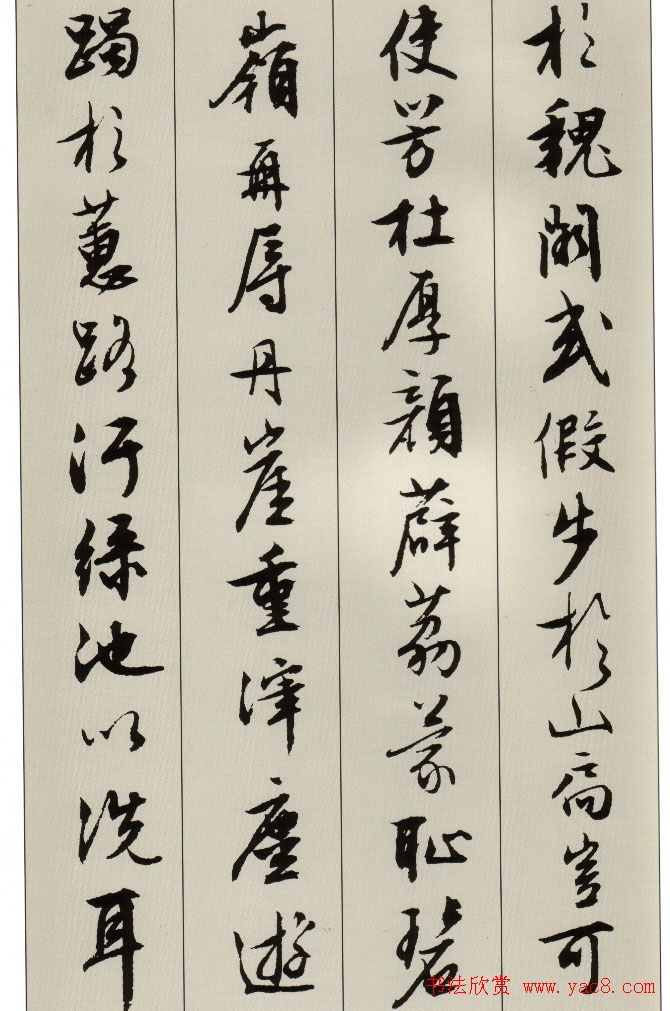 於魏闕或假步於山扃豈可
使芳杜厚顏薜荔蒙恥碧
嶺再辱丹崖重滓塵遊
躅於蕙路汙綠池以洗耳
书法欣赏 www.yac8.com